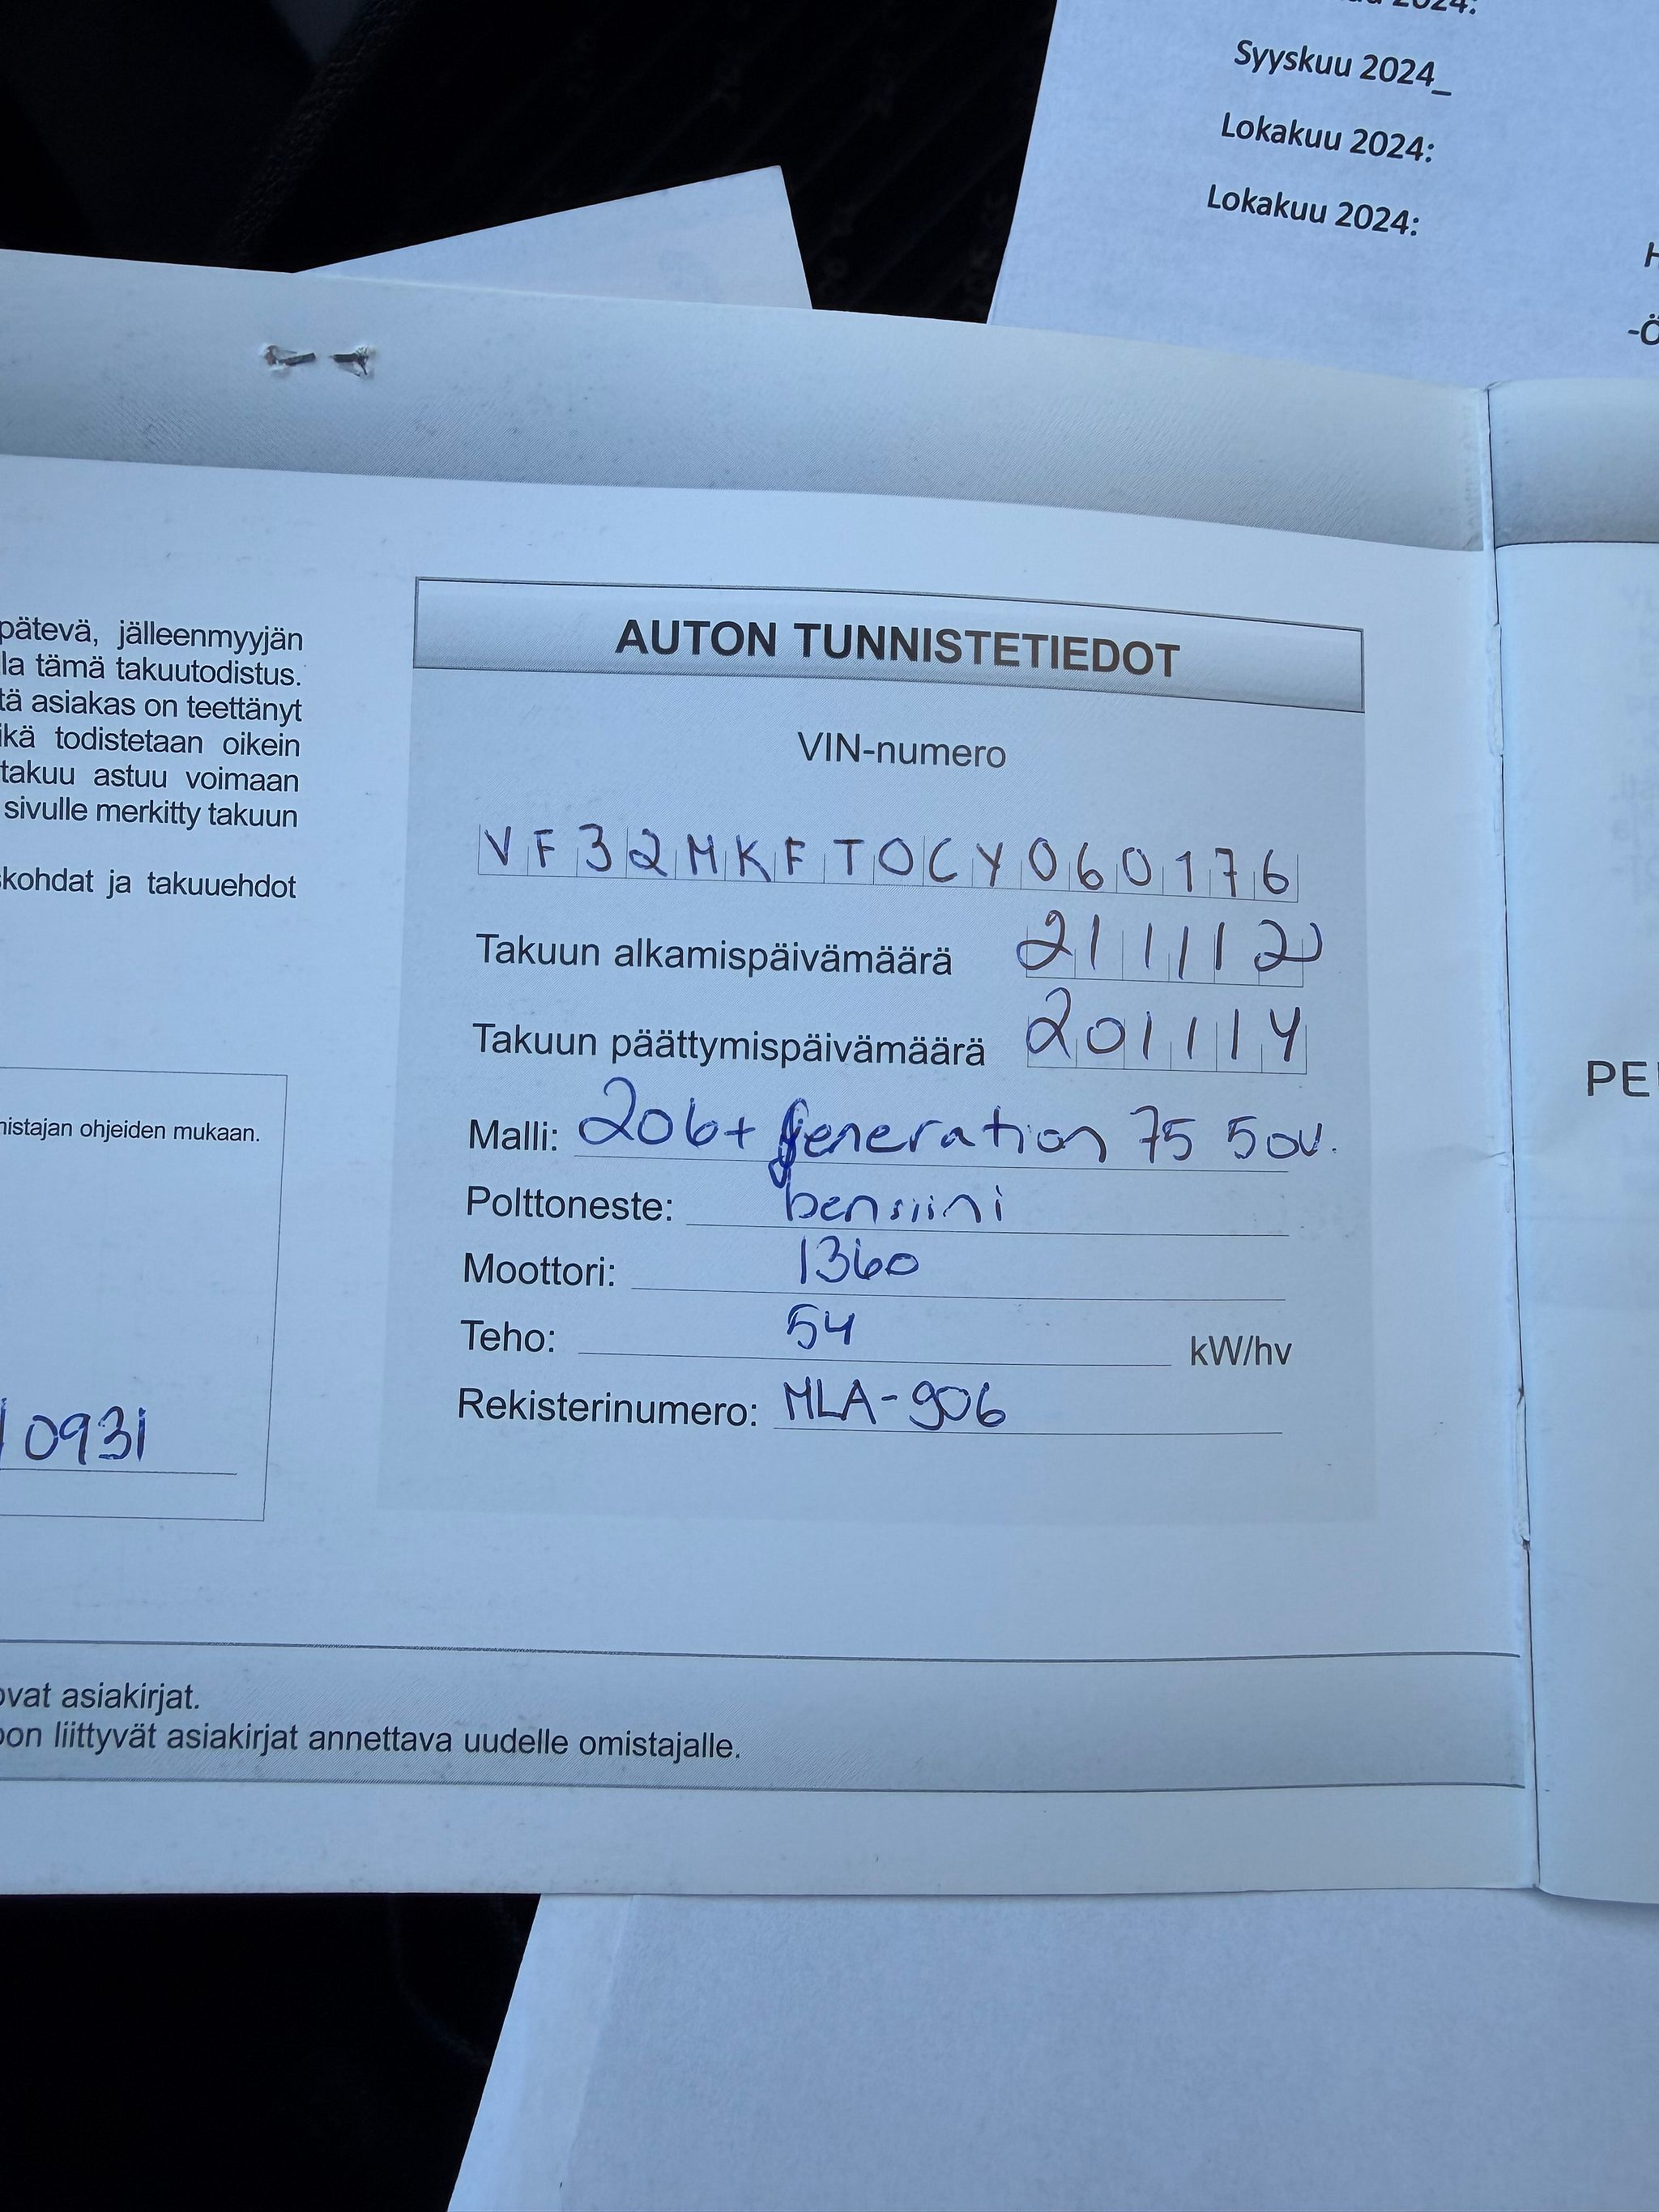 2024:
Syyskuu 2024_
Lokakuu 2024:
Lokakuu 2024:
H
-Ö
pätevä, jälleenmyyjän
la tämä takuutodistus.
tä asiakas on teettänyt
ikä todistetaan oikein
takuu astuu voimaan
sivulle merkitty takuun
kohdat ja takuuehdot
nistajan ohjeiden mukaan.
10931
AUTON TUNNISTETIEDOT
VIN-numero
VF32MKFT0CY060176
Takuun alkamispäivämäärä 211112
Takuun päättymispäivämäärä 201114
Malli: 206+ generation 75 5ov.
Polttoneste: bensiini
Moottori: 1360
Teho: 54 kW/hv
Rekisterinumero: MLA-906
PE
ovat asiakirjat.
oon liittyvät asiakirjat annettava uudelle omistajalle.